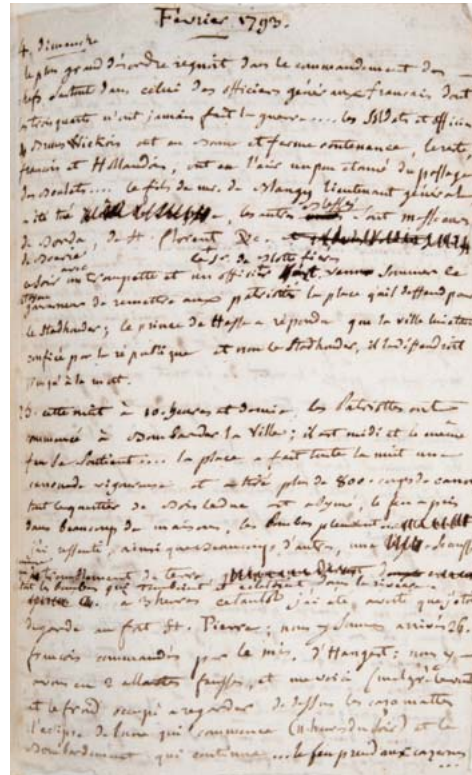 Février 1793.
4, dimanche
le plus grand désordre regnoit dans le commandement des
chefs, surtout dans celui des officiers généraux français dont
les trois quarts n'ont jamais fait la guerre.... les soldats et officiers
Brunswickois ont une bonne et ferme contenance, le reste,
françois et Hollandois, ont eu l'air un peu etonné du passage
des boulets.... le fils de mr. de Blangy lieutenant général
a été tué les autres blessés sont messieurs
de Borda, de St. Florent &c.
ce soir un trompette et un officier sommer le
gouverneur de remettre aux patriotes la place qu'il deffend pour
le Stadhouder; le prince de Hesse a répondu que la ville lui etait
confiée par la république et non le Stadhouder, il la défendroit
jusqu'à la mort.
cette nuit à 10. heures et demie, les Patriottes ont
commencé à bombarder la Ville; il est midi et le même
feu se soutient.... la place a fait toute la nuit une
canonade vigoureuse et a tiré plus de 800. coups de canon
tout le quartier de Bois le duc est abymé, le feu a pris
dans beaucoup de maisons, les bombes pleuvent
j'ai ressenti, ainsi que beaucoup d'autres, une
de terre,
tant les bombes qui tomboient et dans la rivière
à 3 heures j'ai été averti que j'étois
de garde au fort St. Pierre; nous y sommes arrivés 26.
françois commandés par le mis. d'Hangest; nous y
avons eu 2 allertes fausses, et me voici (malgré le vent
et le froid occupé à regarder de dessus les cazemattes
l'eclipse de lune qui commence (11 heures du soir) et le
bombardement qui continue... le feu prend aux cazernes...